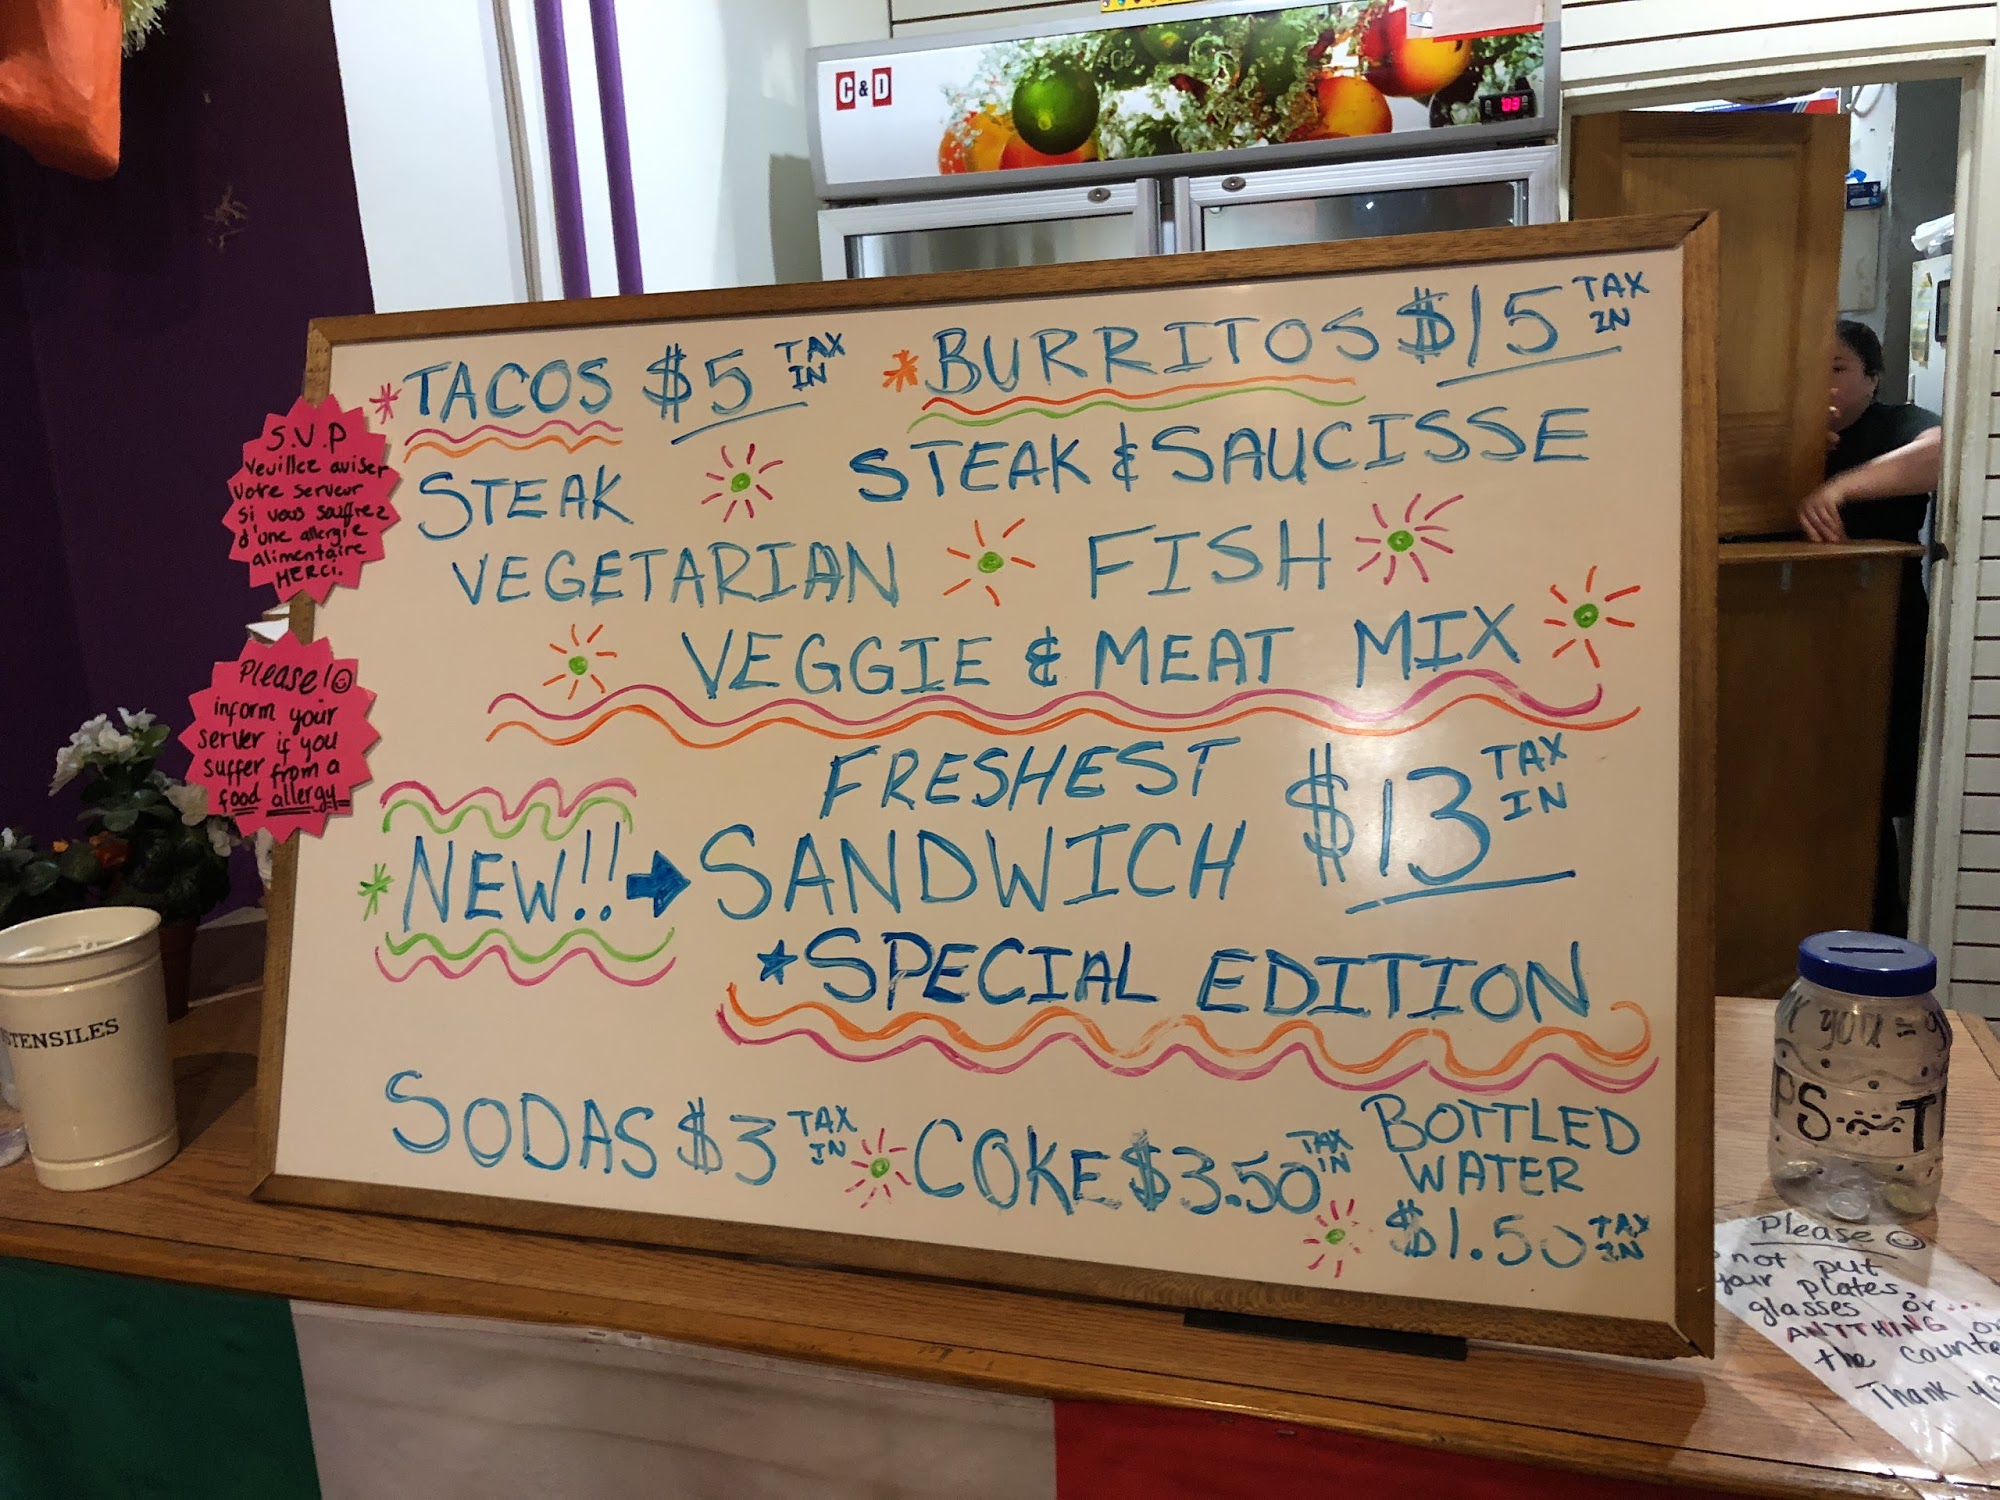 C & D
TACOS $5 TAX IN
BURRITOS $15 TAX IN
STEAK
STEAK & SAUCISSE
VEGETARIAN
FISH
VEGGIE & MEAT MIX
FRESHEST
NEW!! SANDWICH $13 TAX IN
SPECIAL EDITION
SODAS $3 TAX IN
COKE $3.50 TAX IN
BOTTLED
WATER
$1.50 TAX IN
S.V.P
Veuillez aviser
votre serveur
si vous souffrez
d'une allergie
alimentaire
MERCI.
Please!
inform your
server if you
suffer from a
food allergy
STENSILES
you =
PS T
Please
not put
your plates,
glasses or...
ANYTHING
the counte
Thank